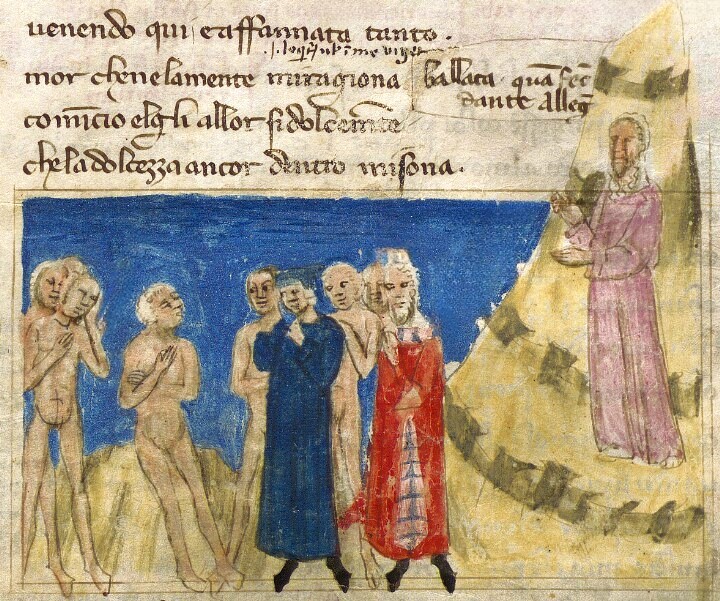 uenendo qui eaffannata tanto.
mor che nela mente miragiona
ballata. quā fec̄
dante Alleḡ
comīcio elgli allor si dolcemēte
che la dolcezza ancor dentro misona.